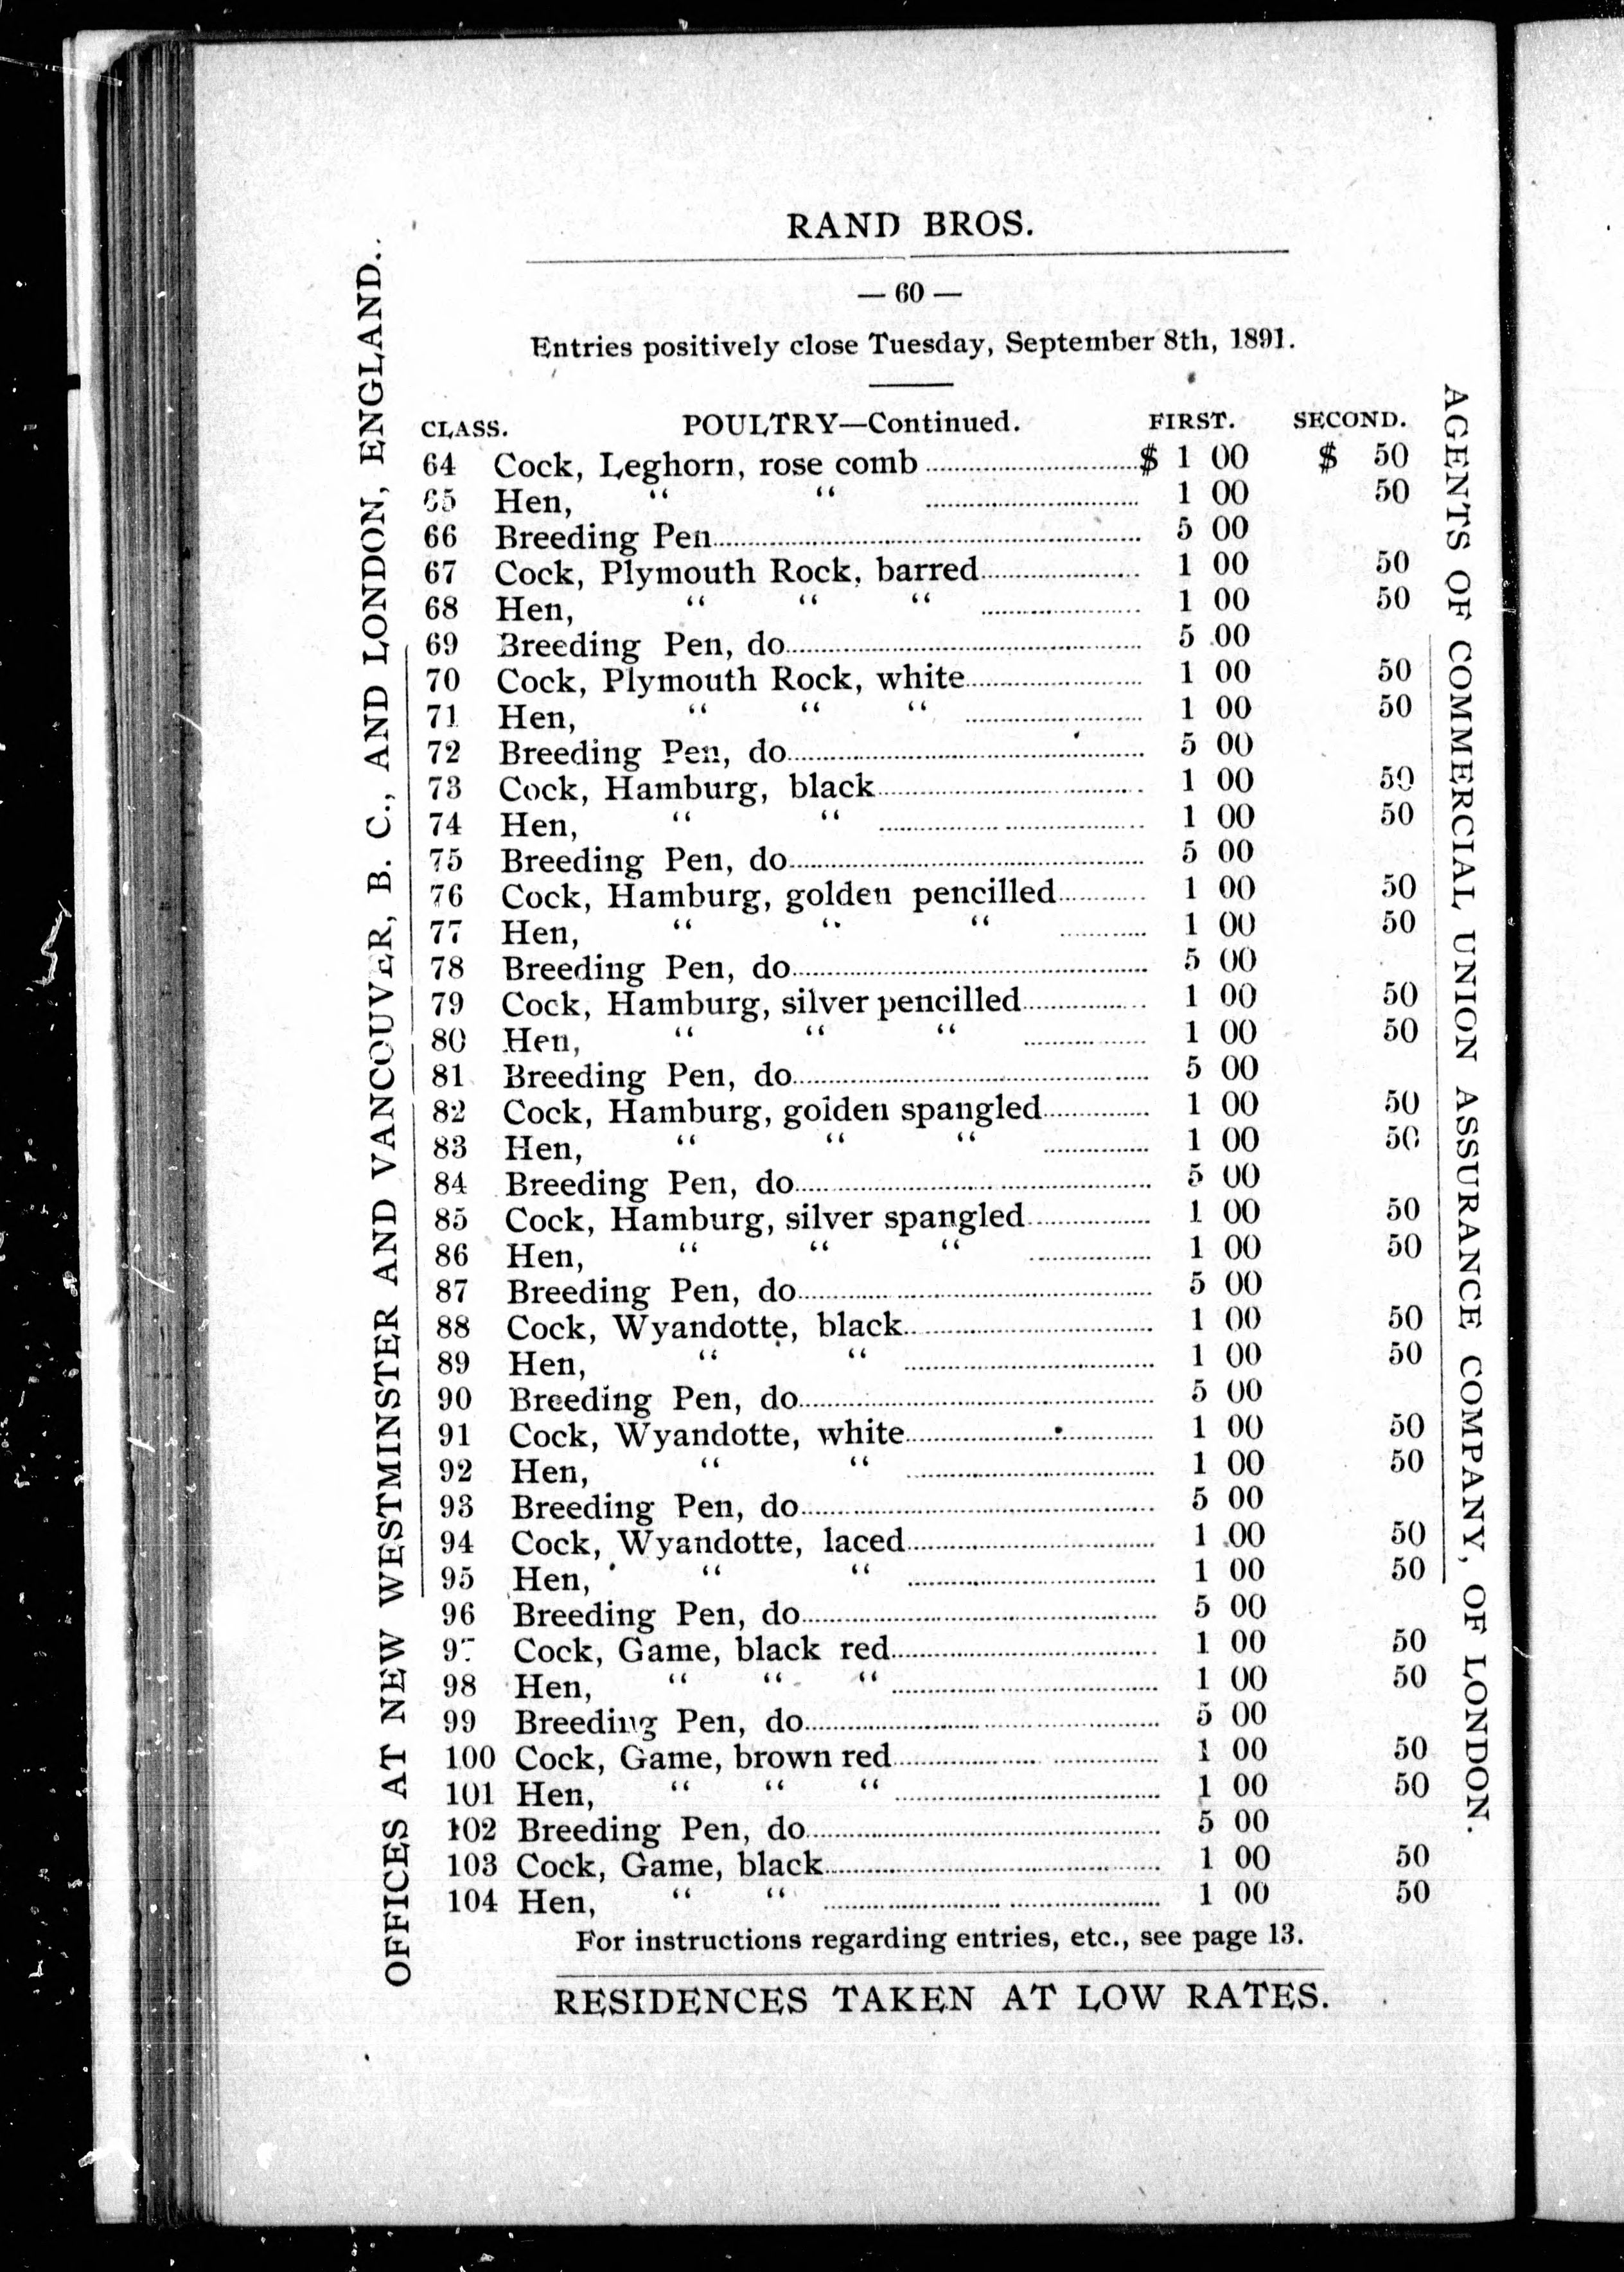 RAND BROS.
— 60 —
Entries positively close Tuesday, September 8th, 1891.
CLASS. POULTRY—Continued. FIRST. SECOND.
64 Cock, Leghorn, rose comb $ 1 00 $ 50
65 Hen, “ “ 1 00 50
66 Breeding Pen 5 00
67 Cock, Plymouth Rock, barred 1 00 50
68 Hen, “ “ “ 1 00 50
69 Breeding Pen, do 5 00
70 Cock, Plymouth Rock, white 1 00 50
71 Hen, “ “ “ 1 00 50
72 Breeding Pen, do 5 00
73 Cock, Hamburg, black 1 00 50
74 Hen, “ “ 1 00 50
75 Breeding Pen, do 5 00
76 Cock, Hamburg, golden pencilled 1 00 50
77 Hen, “ “ “ 1 00 50
78 Breeding Pen, do 5 00
79 Cock, Hamburg, silver pencilled 1 00 50
80 Hen, “ “ “ 1 00 50
81 Breeding Pen, do 5 00
82 Cock, Hamburg, golden spangled 1 00 50
83 Hen, “ “ “ 1 00 50
84 Breeding Pen, do 5 00
85 Cock, Hamburg, silver spangled 1 00 50
86 Hen, “ “ “ 1 00 50
87 Breeding Pen, do 5 00
88 Cock, Wyandotte, black 1 00 50
89 Hen, “ “ 1 00 50
90 Breeding Pen, do 5 00
91 Cock, Wyandotte, white 1 00 50
92 Hen, “ “ 1 00 50
93 Breeding Pen, do 5 00
94 Cock, Wyandotte, laced 1 00 50
95 Hen, “ “ 1 00 50
96 Breeding Pen, do 5 00
97 Cock, Game, black red 1 00 50
98 Hen, “ “ “ 1 00 50
99 Breeding Pen, do 5 00
100 Cock, Game, brown red 1 00 50
101 Hen, “ “ “ 1 00 50
102 Breeding Pen, do 5 00
103 Cock, Game, black 1 00 50
104 Hen, “ “ 1 00 50
For instructions regarding entries, etc., see page 13.
RESIDENCES TAKEN AT LOW RATES.
OFFICES AT NEW WESTMINSTER AND VANCOUVER, B. C., AND LONDON, ENGLAND.
AGENTS OF COMMERCIAL UNION ASSURANCE COMPANY, OF LONDON.